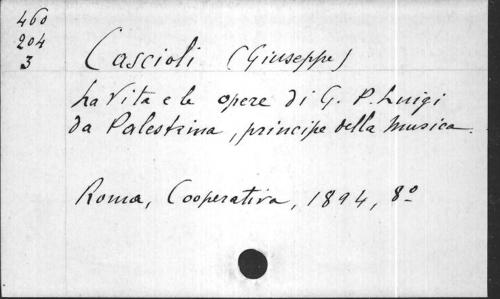 460
204
3
Cascioli (Giuseppe)
La Vita e le opere di G. P. Luigi
da Palestrina, principe della Musica.
Roma, Cooperativa, 1894, 8º